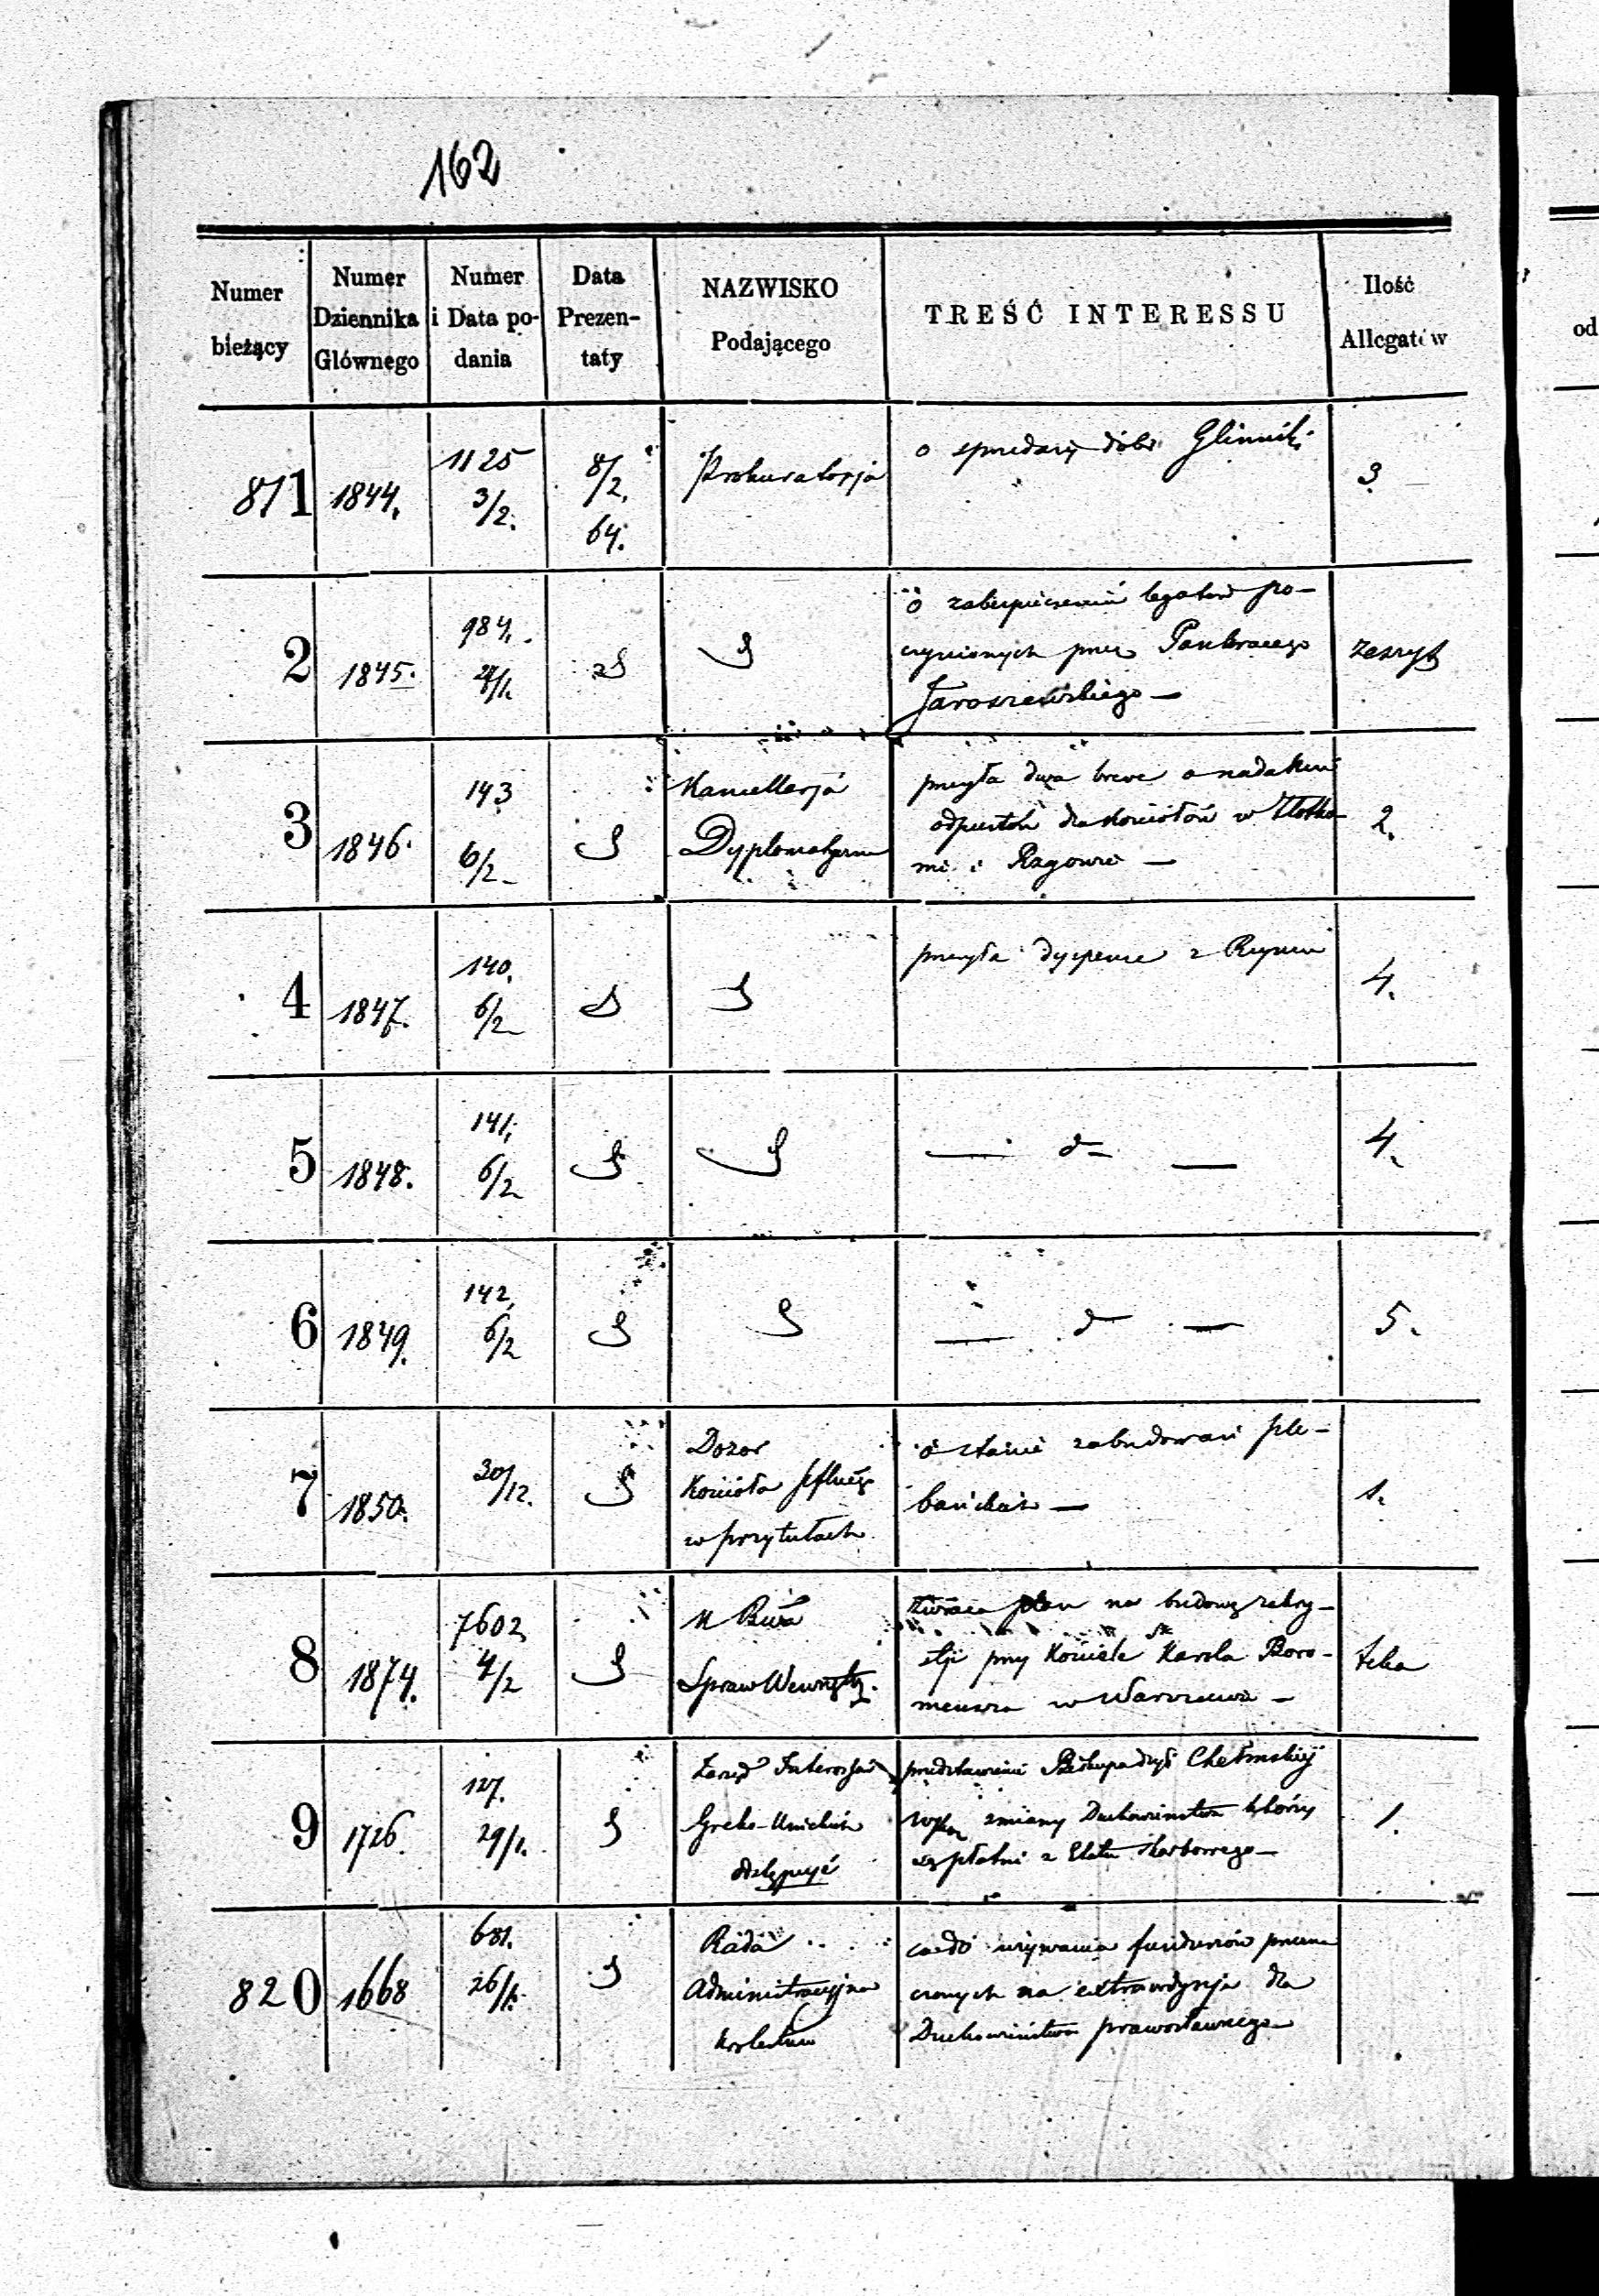 162
Numer bieżący
Numer Dziennika Głównego
Numer i Data podania
Data Prezentaty
NAZWISKO Podającego
TREŚĆ INTERESSU
Ilość Allegatów
811
1844.
1125
3/2.
8/2.
64.
Prokuratorja
o sprzedaży dóbr
3
2
1845.
984.
o zabezpieczeniu legatów po-
czynionych przez Pankracego
Jaroszewskiego —
zeszyt
3
1846.
143
6/2
Kancellarja
Dyplomatyczna
przesyła dwa breve o nadaniu
odpustów dla kościołów w
i
2.
4
1847.
140.
6/2
przesyła dyspensę z Rzymu
4.
5
1848.
141.
6/2
— d —
4.
6
1849.
142.
6/2
— d —
5.
7
1850.
30/12.
Dozór
Kościoła
w Przytułach
o stanie zabudowań ple-
bańskich —
1.
8
1874.
7602
4/2
Spraw Wewnętrz.
zwraca plan na budowę zakry-
stji przy Kościele Sw Karola Boro-
meusza w Warszawie —
teka
9
1726.
127.
29/1.
Zarząd Interessów
Greko-Unickich
odstępuje
przedstawienie Biskupa dyec Chełmskiej
zmiany Duchowieństwa który
są płatni z Etatu skarbowego —
1.
820
1668
681.
26/1.
Rada
Administracyjna
Królestwa
co do używania funduszów przezna
czonych na extraordynarja dla
Duchowieństwa prawosławnego —
od